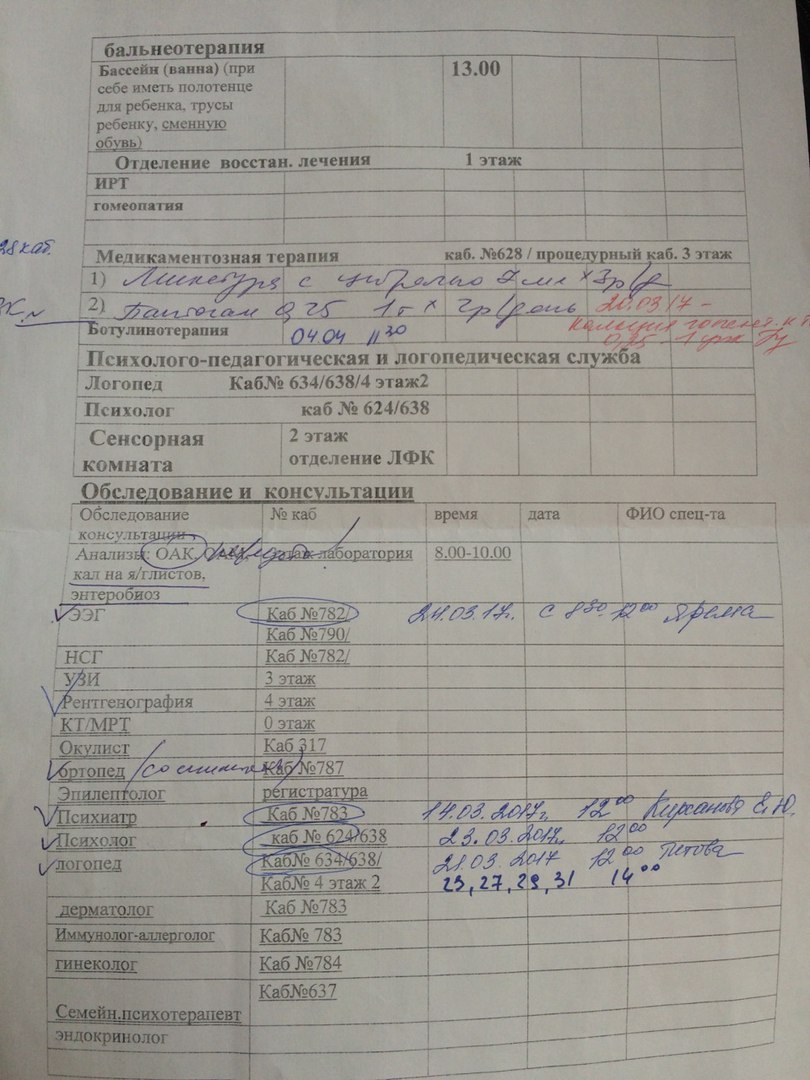 бальнеотерапия
Бассейн (ванна) (при 13.00
себе иметь полотенце
для ребенка, трусы
ребенку, сменную
обувь)
Отделение восстан. лечения 1 этаж
ИРТ
гомеопатия
каб.
Медикаментозная терапия каб. №628 / процедурный каб. 3 этаж
1) Микстура с цитралью 7 мл х 3р/д
2) Пантогам 0,25 1т х 2р/день 20.03.17-
Ботулинотерапия 04.04 11 30
Психолого-педагогическая и логопедическая служба
Логопед Каб№ 634/638/4 этаж2
Психолог каб № 624/638
Сенсорная 2 этаж
комната отделение ЛФК
Обследование и консультации
Обследование № каб время дата ФИО спец-та
консультации
Анализы: ОАК, лаборатория 8.00-10.00
кал на я/глистов,
энтеробиоз
ЭЭГ Каб №782/ 24.03.17г. с 8 30 12 00
Каб №790/
НСГ Каб №782/
УЗИ 3 этаж
Рентгенография 4 этаж
КТ/МРТ 0 этаж
Окулист Каб 317
ортопед Каб №787
Эпилептолог регистратура
Психиатр Каб №783 14.03.2017г. 12 00 Кирсанова Е.Ю.
Психолог каб № 624/638 23.03.2017г. 12 00
логопед Каб№ 634/638/ 21.03.2017 12 00
Каб№ 4 этаж 2 23, 27, 29, 31 14 00
дерматолог Каб №783
Иммунолог-аллерголог Каб№ 783
гинеколог Каб №784
Каб№637
Семейн.психотерапевт
эндокринолог